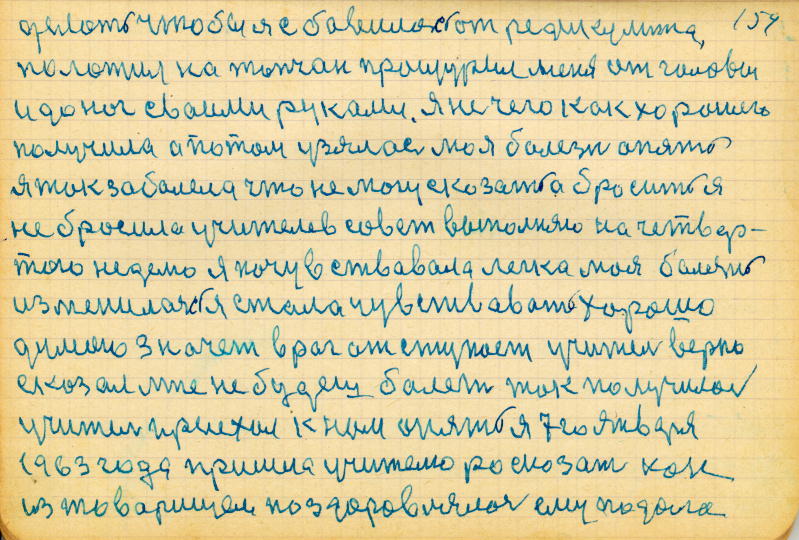 делоть чтобы я сбавиласъ от редикулита, 159
положил на топчан прощурил меня от головы
и до ног своими руками. я не чего как хорошего
получила а потом узялось моя болезн опять
я ток заболела что не могу скозать а бросить я
не бросила учителев совет выполняю на четвер-
тою неделю я почувствавала легка моя болезнь
изменилась я стала чувствавать хорошо
думаю значет враг отступает учител верно
скозал мне не будеш болет ток получилос
учител приехал к нам опять я 7го января
1963 года пришла учителю росказат как
из товарищем поздоровлялос ему подала